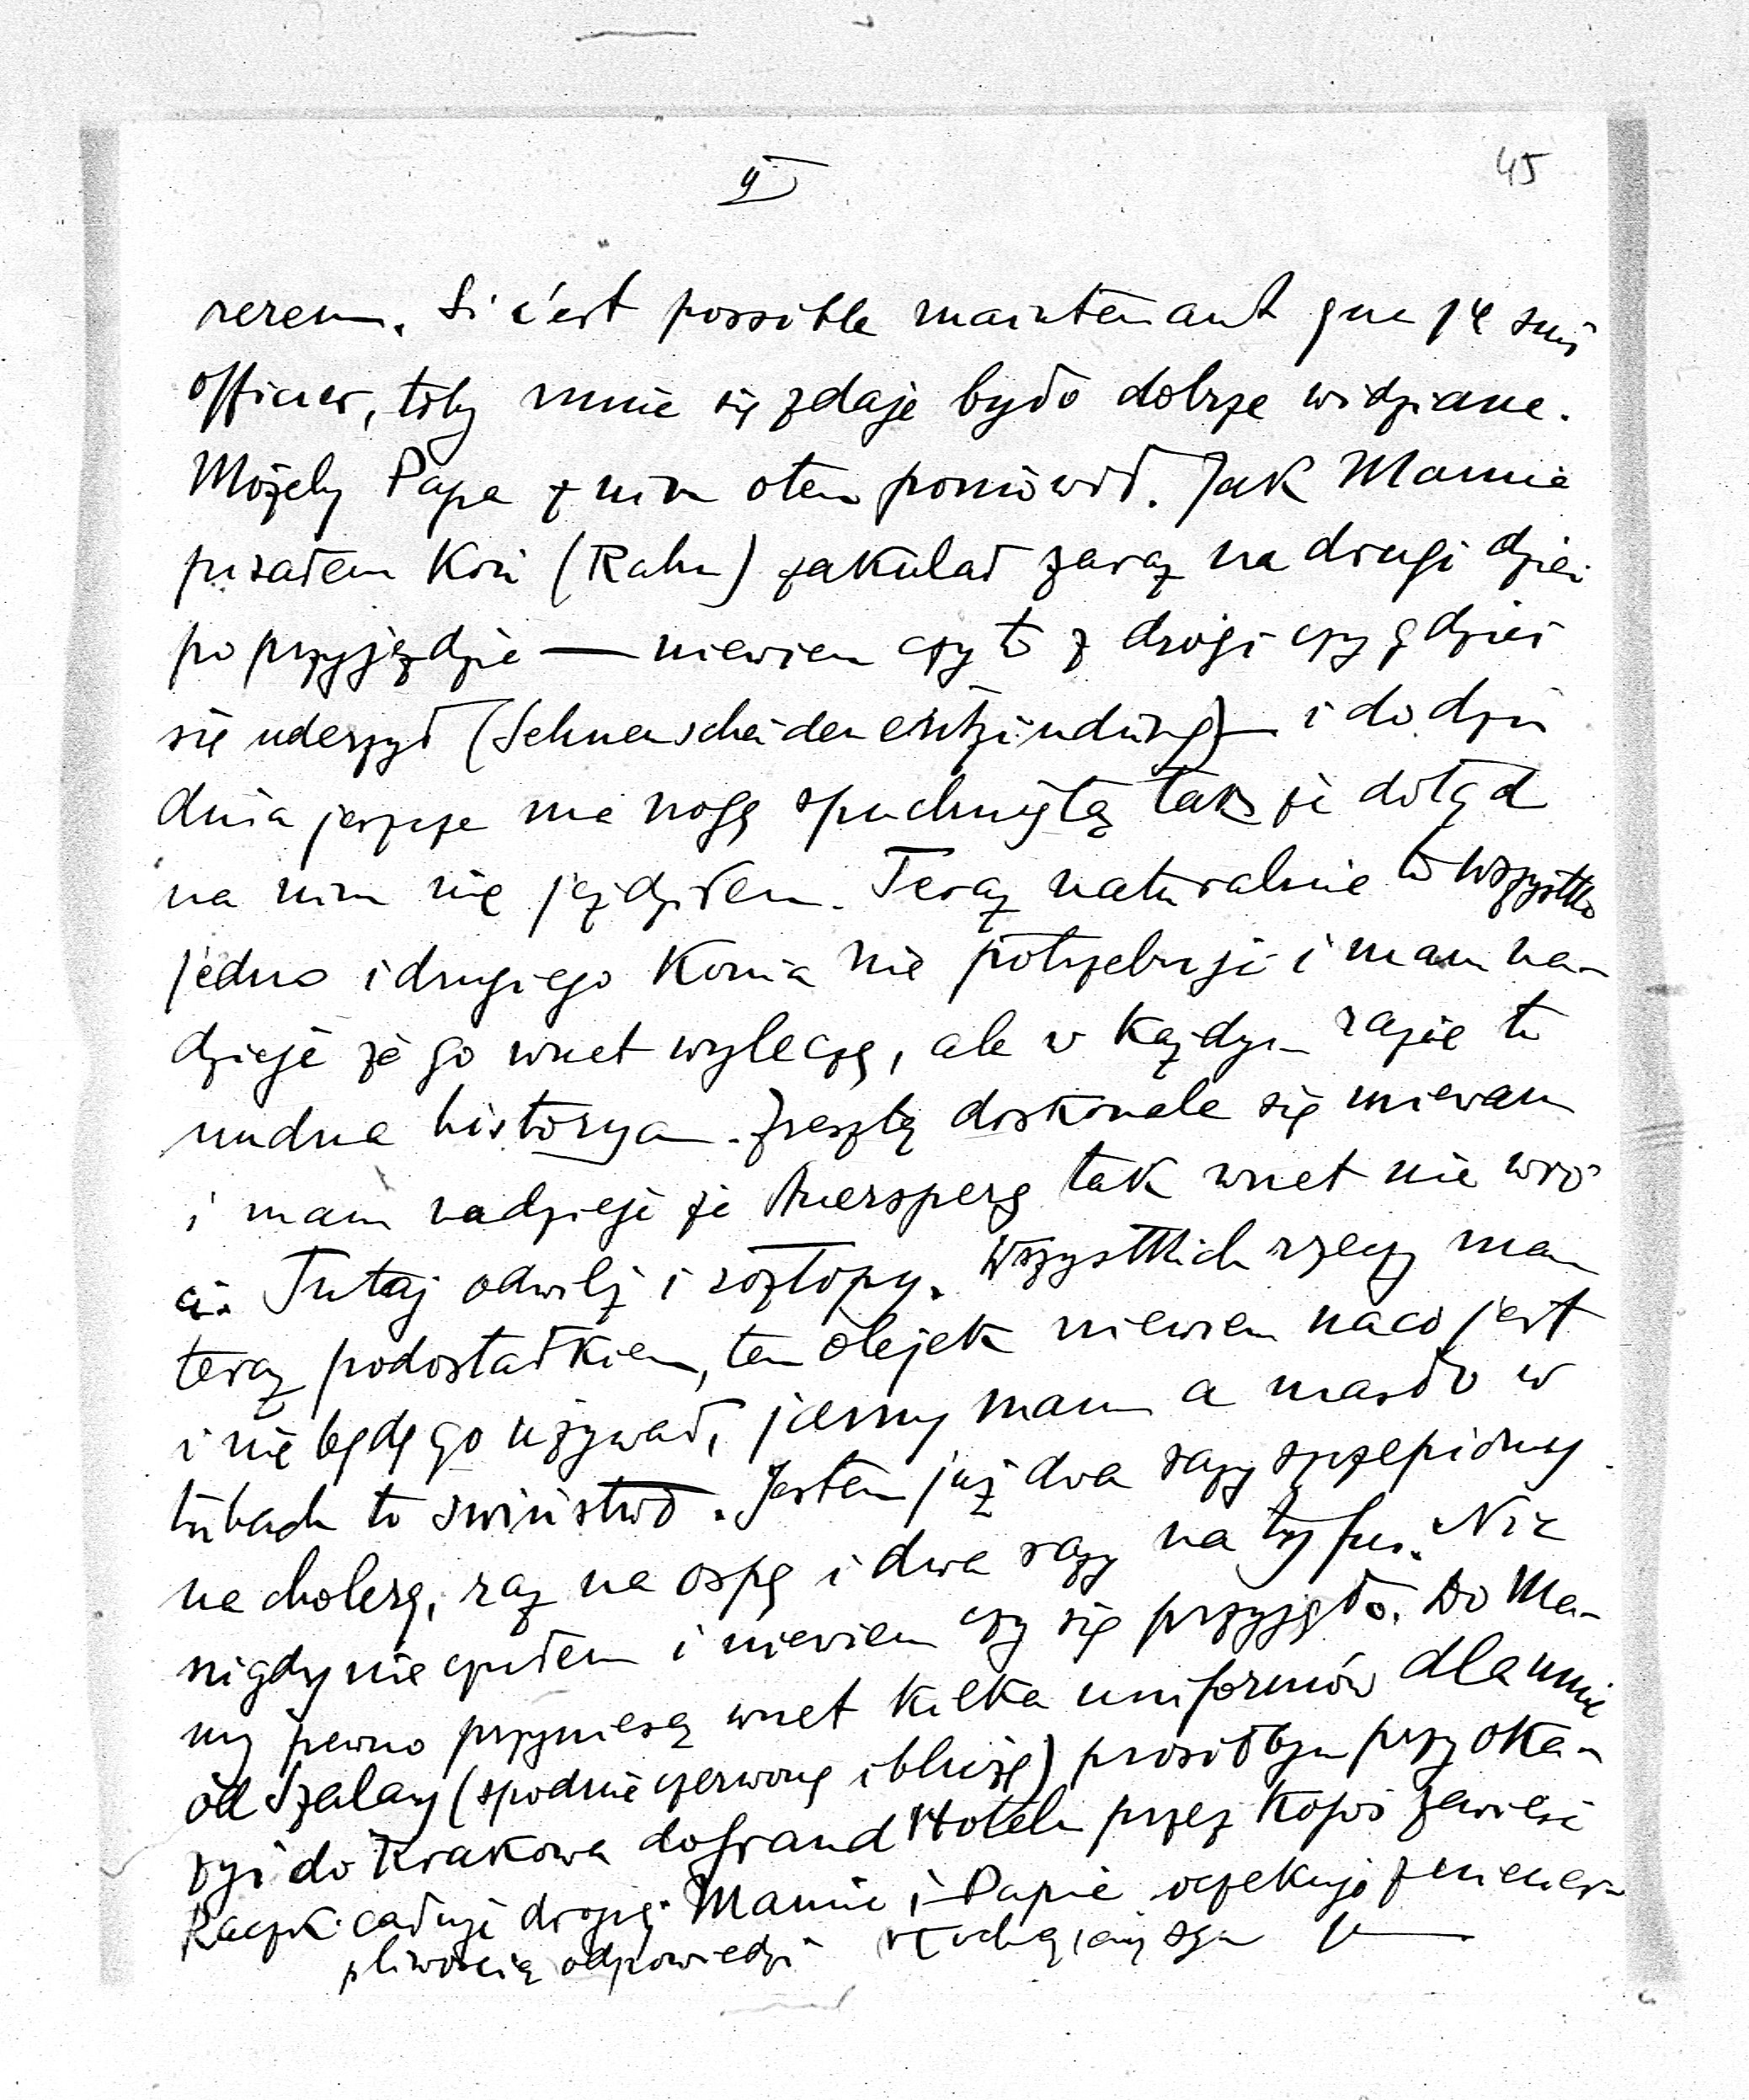 45
rerem. Si c'est possible maintenant que je suis
officier, toby mnie się zdaje było dobrze widziane.
Możeby Papa z nim otem pomówił. Jak Mamie
pisałem Koń (Rahn) zakulał zaraz na drugi dzień
po przyjeździe — niewiem czy to z drogi czy gdzieś
się uderzył (Sehnenscheidenentzündung) — i do dziś
dnia jeszcze ma nogę spuchniętą tak że dotąd
na nim nie jeździłem. Teraz naturalnie to wszystko
jedno i drugiego Konia nie potrzebuję i mam na-
dzieję że go wnet wyleczę, ale w każdym razie to
nudna historya. Zresztą doskonale się miewam
i mam nadzieję że Auersperg tak wnet nie wró-
ci. Tutaj odwilż i roztopy. Wszystkich rzeczy mam
teraz podostatkiem, ten olejek niewiem naco jest
i nie będę go używał, mam a masło w
tubach to świństwo. Jestem już dwa razy szczepiony
na cholerę, raz na ospę i dwa razy na tyfus. Nic
nigdy nie czułem i niewiem czy się przyjęło. Do Ma-
my pewno przyniesą wnet kilka uniformów dla mnie
od Szalay (spodnie czerwone i bluzę) prosiłbym przy oka-
zyi do Krakowa do Grand Hotelu przez Kogoś zawieść
Rączki całuję drogiej Mamie i Papie oczekuję z niecier-
pliwością odpowiedzi kochający syn